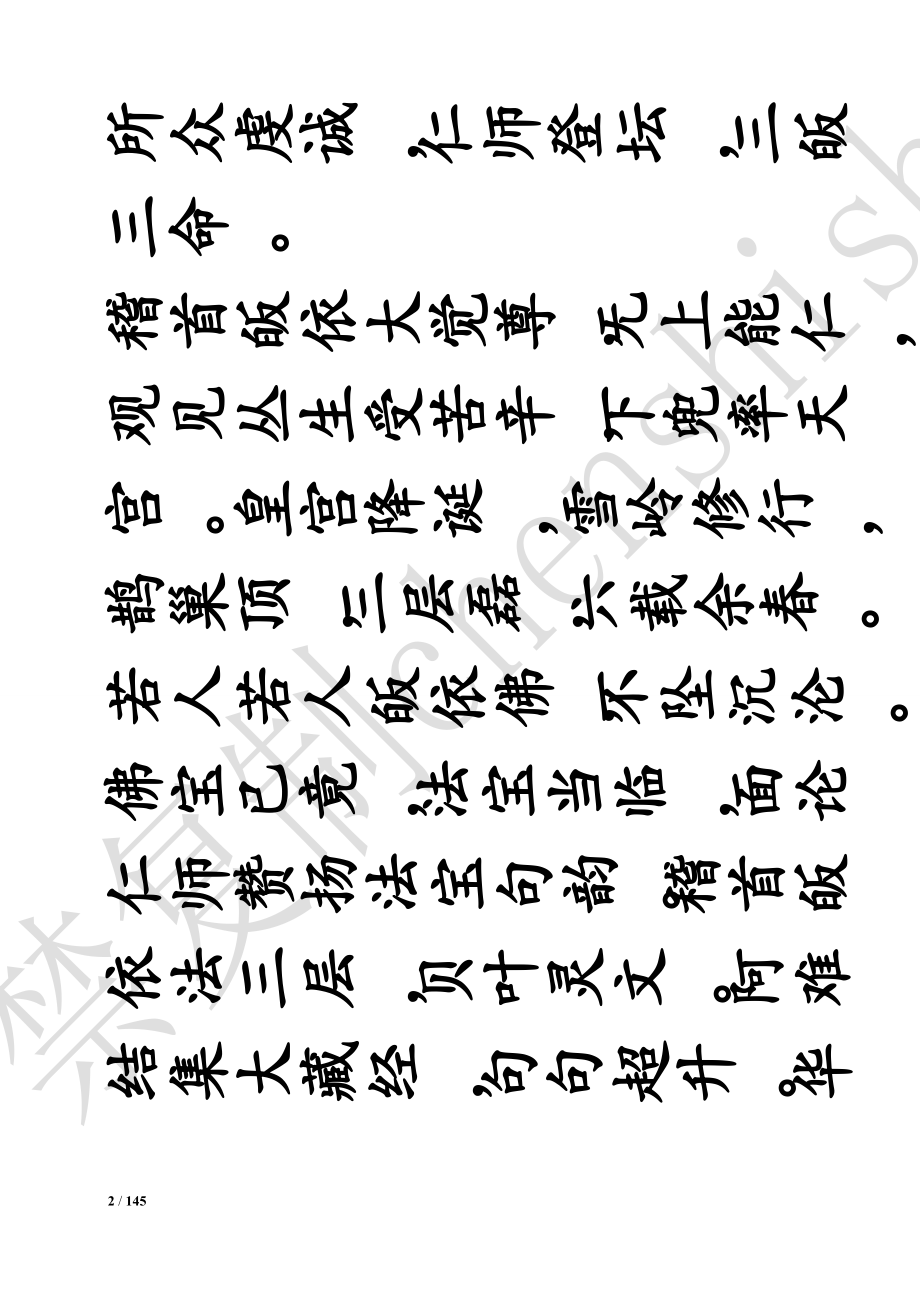 所众虔诚，仁师登坛，三皈
三命。
稽首皈依大觉尊，无上能仁，
观见丛生受苦辛，下兜率天
宫。皇宫降诞，雪岭修行，
鹊巢顶，三层磊，六载余春。
若人若人皈依佛，不坠沉沦。
佛宝已竟，法宝当临，面论
仁师赞扬法宝句韵。稽首皈
依法三层，贝叶灵文。阿难
结集大藏经，句句超升。华
2 / 145
禁复制chenshish